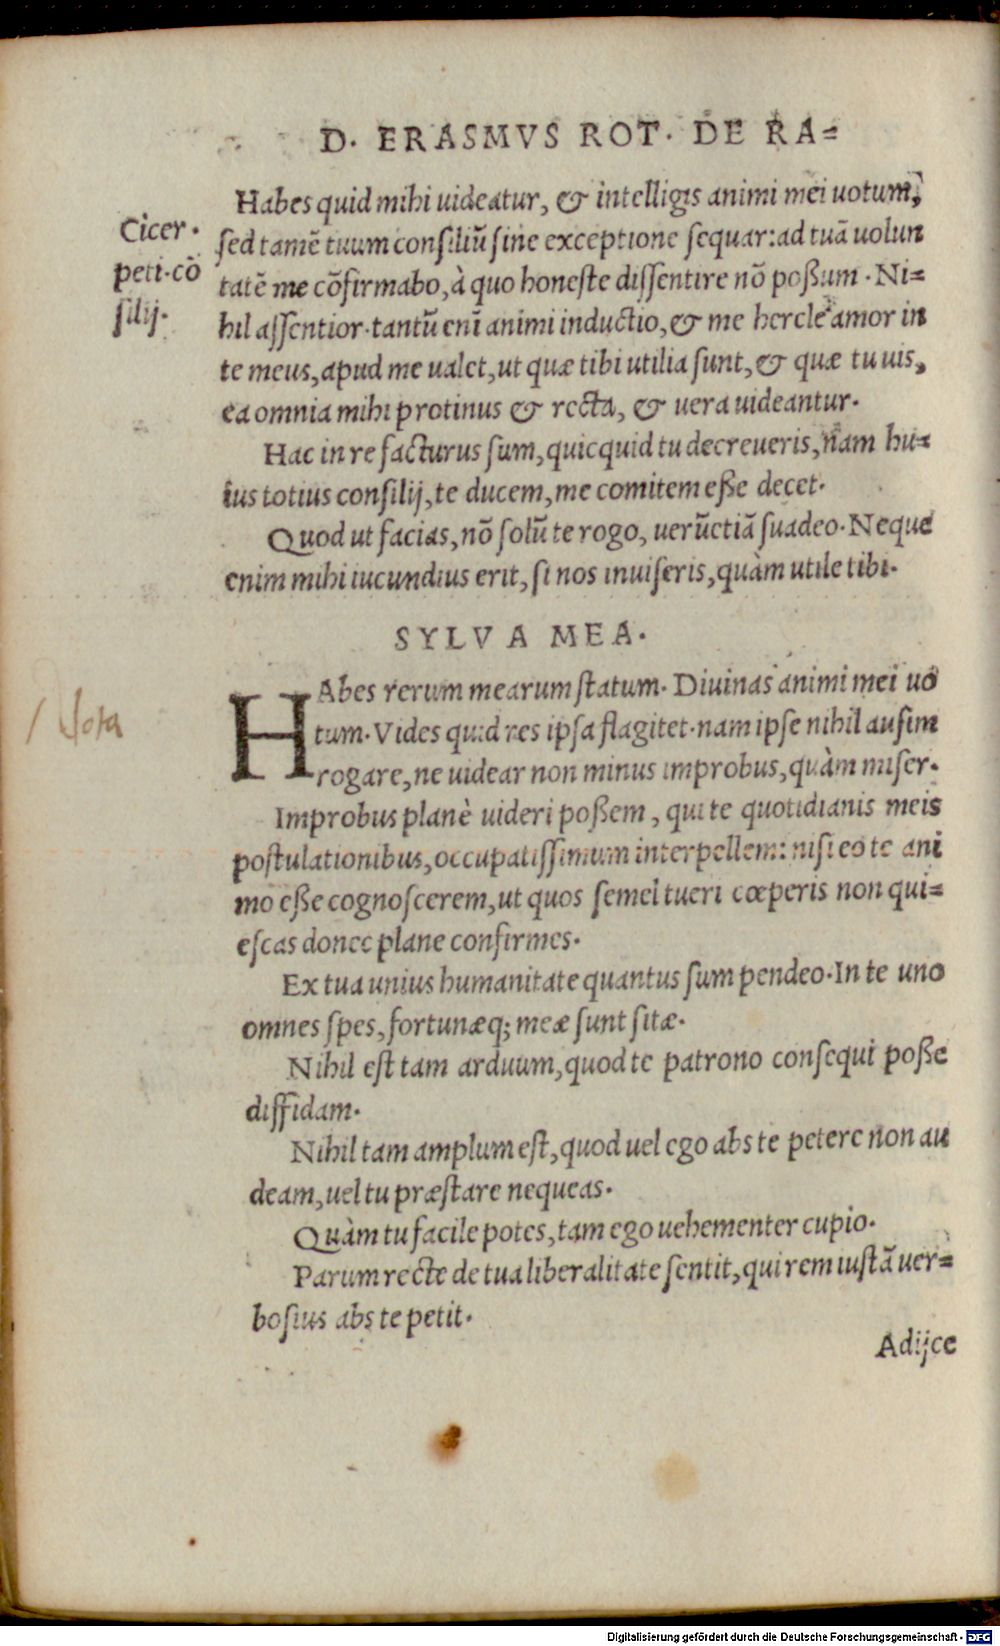 D. ERASMVS ROT. DE RA=
Habes quid mihi uideatur, & intelligis animi mei uotum,
Cicer.
peti.cõ
silij.
sed tamē tuum consiliū sine exceptione sequar: ad tuã uolun
tatē me cõfirmabo, à quo honeste dissentire nõ poßum. Ni=
hil assentior. tantū enĩ animi inductio, & me hercle amor in
te meus, apud me ualet, ut quæ tibi utilia sunt, & quæ tu uis,
ea omnia mihi protinus & recta, & uera uideantur.
Hac in re facturus sum, quicquid tu decreueris, nam hu=
ius totius consilij, te ducem, me comitem eße decet.
Quod ut facias, nõ solū te rogo, uerūetiã suadeo. Neque
enim mihi iucundius erit, si nos inuiseris, quàm utile tibi.
SYLVA MEA.
HAbes rerum mearum statum. Diuinas animi mei uo
tum. Vides quid res ipsa flagitet. nam ipse nihil ausim
rogare, ne uidear non minus improbus, quàm miser.
Nota
Improbus planè uideri poßem, qui te quotidianis meis
postulationibus, occupatissimum interpellem: nisi eo te ani
mo eße cognoscerem, ut quos semel tueri cœperis non qui=
escas donec plane confirmes.
Ex tua unius humanitate quantus sum pendeo. In te uno
omnes spes, fortunæq; meæ sunt sitæ.
Nihil est tam arduum, quod te patrono consequi poße
diffidam.
Nihil tam amplum est, quod uel ego abs te petere non au
deam, uel tu præstare nequeas.
Quàm tu facile potes, tam ego uehementer cupio.
Parum recte de tua liberalitate sentit, qui rem iustã uer=
bosius abs te petit.
Adijce
Digitalisierung gefördert durch die Deutsche Forschungsgemeinschaft - DFG